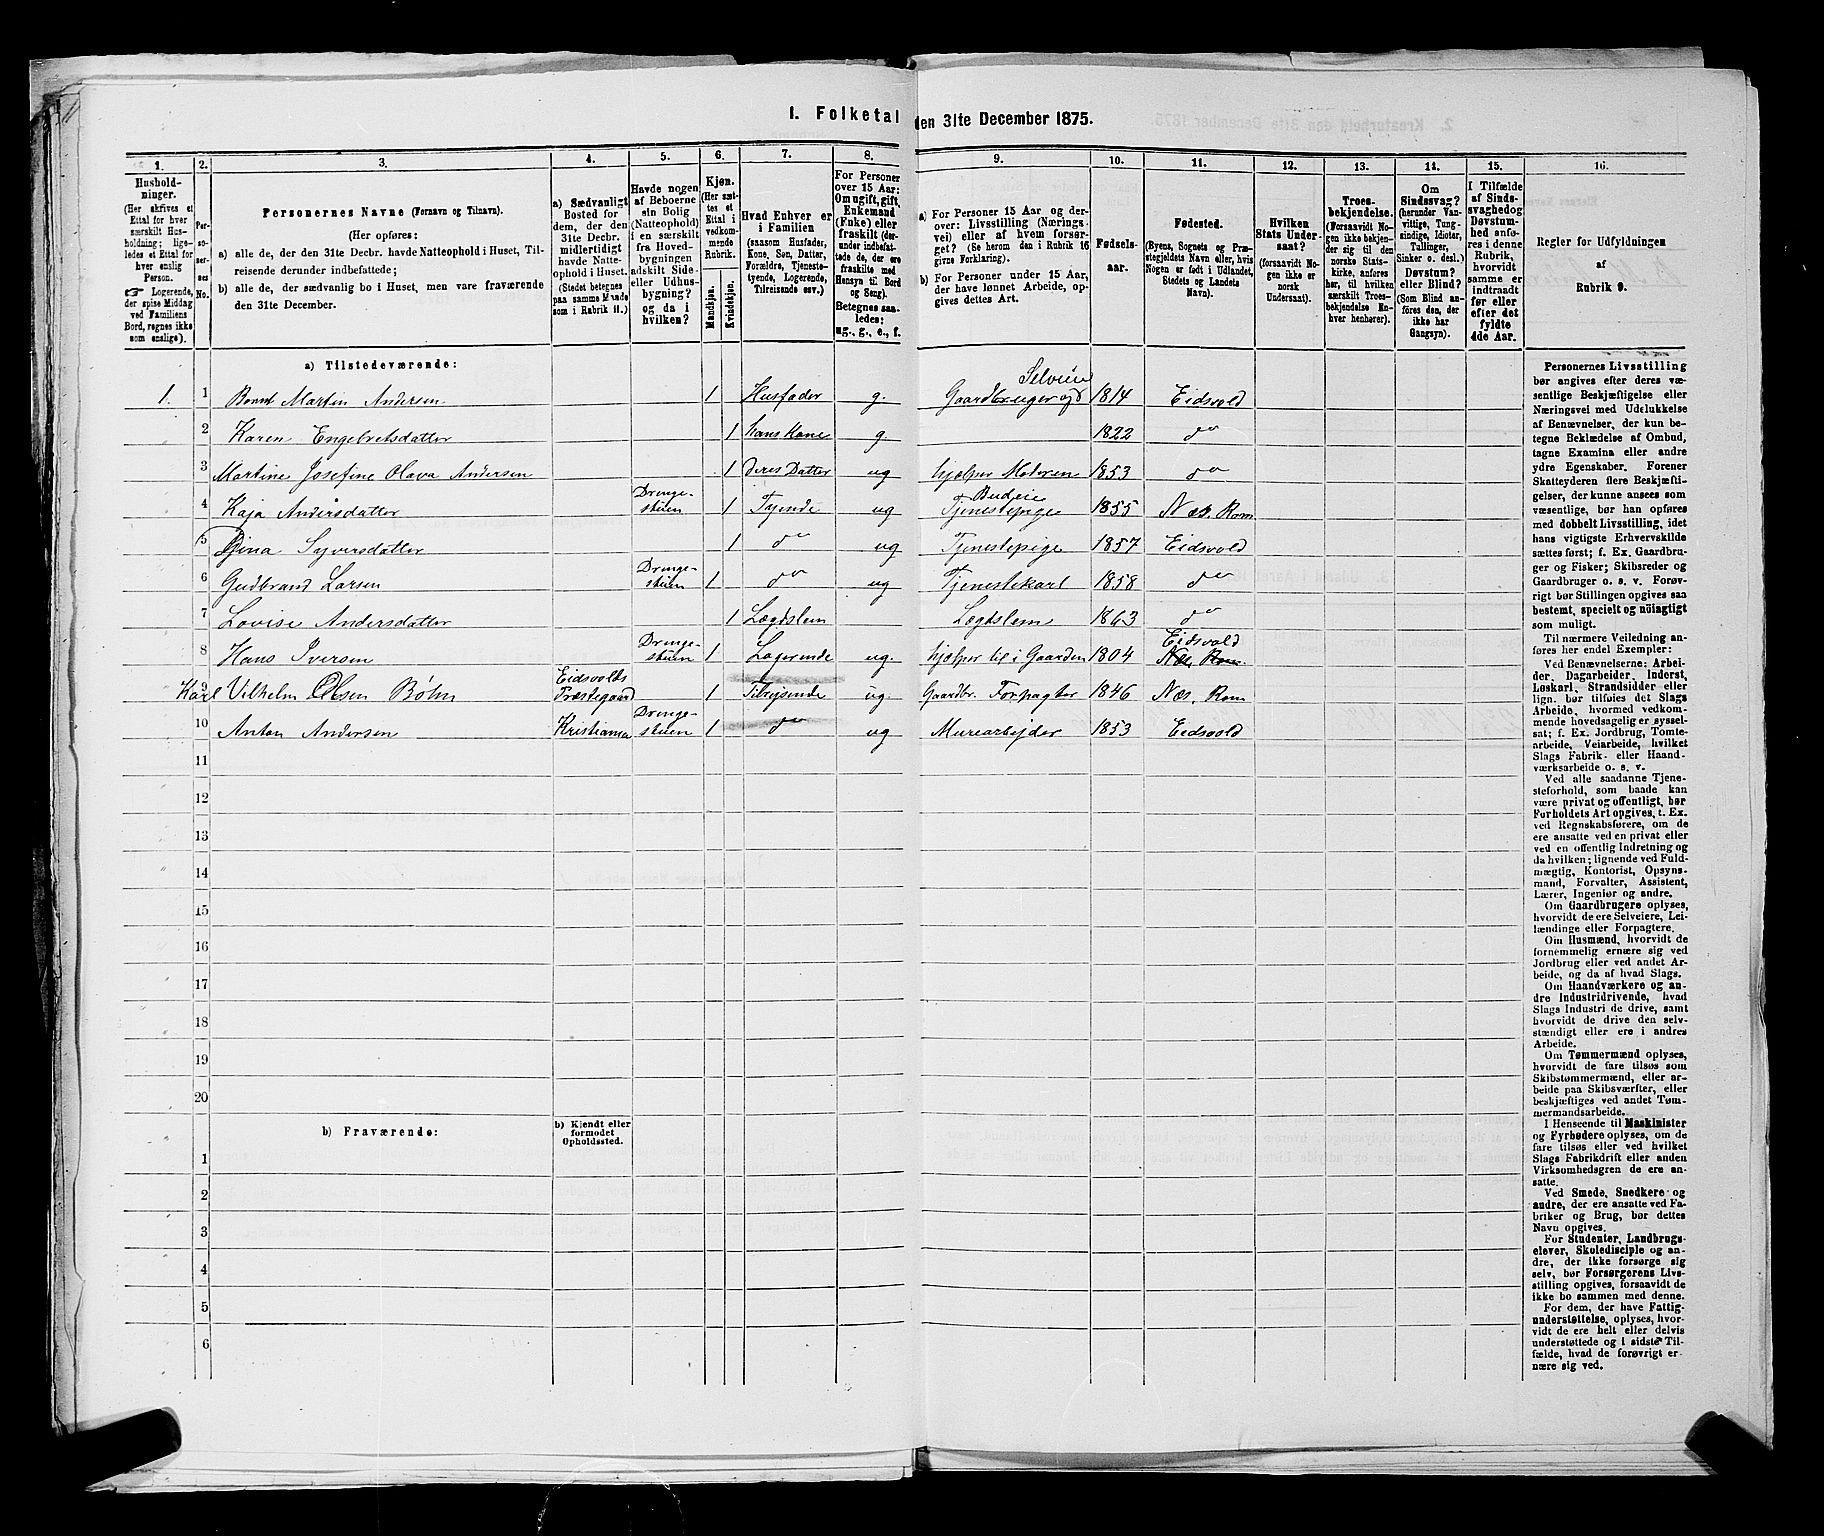 I. Folketal den 31te December 1875.
1. 2. 3. 4. 5. 6. 7. 8. 9. 10. 11. 12. 13. 14. 15. 16.
Husholdninger.
(Her skrives et
Ettal for hver
særskilt Husholdning; ligeledes
et Ettal for
hver enslig
Person.
☞ Logerende,
der spise Middag
ved Familiens
Bord, regnes ikke
som enslige).
Personernes No.
Personernes Navne (Fornavn og Tilnavn).
(Her opføres:
a) alle de, der den 31te Decbr. havde Natteophold i Huset, Tilreisende derunder indbefattede;
b) alle de, der sædvanlig bo i Huset, men vare fraværende
den 31te December.
a) Sædvanligt
Bosted for
dem, der den
31te Decbr.
midlertidigt
havde Natteophold
i Huset.
(Stedet betegnes
paa samme Maade
som i Rubrik 11.)
Havde nogen
af Beboerne
sin Bolig
(Natteophold)
i en særskilt
fra Hovedbygningen
adskilt Side-
eller Udhusbygning?
og da i
hvilken?
Kjøn.
(Her sættes
et
Ettal i
vedkommende
Rubrik.
Mandkjøn.
Kvindekjøn.
Hvad Enhver er
i Familien
(saasom Husfader,
Kone, Søn, Datter,
Forældre, Tjenestetyende,
Logerende,
Tilreisende osv.)
For Personer
over 15 Aar:
Om ugift, gift,
Enkemand
(Enke) eller
fraskilt (derunder
indbefattede
de, der ere
fraskilte med
Hensyn til Bord
og Seng).
Betegnes saaledes:
ug., g., e., f.
a) For Personer 15 Aar og derover:
Livsstilling (Næringsvei)
eller af hvem forsørget?
(Se herom den i Rubrik 16
givne Forklaring).
b) For Personer under 15 Aar,
der have lønnet Arbeide, opgives
dettes Art.
Fødselsaar.
Fødested.
(Byens, Sognets og Præstegjeldets
Navn eller, hvis
Nogen er født i Udlandet,
Stedets og Landets
Navn).
Hvilken
Stats Undersaat?
(forsaavidt Nogen
ikke er
norsk
Undersaat).
Troesbekjendelse.
(Forsaavidt Nogen
ikke bekjender
sig til den
norske Statskirke,
anføres
her, til hvilken
særskilt Troesbekjendelse
Enhver
henhører).
Om
Sindssvag?
(herunder Vanvittige,
Tungsindige,
Idioter,
Tullinger,
Sinker o. desl.)
Døvstum?
eller Blind?
(Som Blind anføres
den, der
ikke har
Gangsyn).
I Tilfælde
af Sindssvaghed
og
Døvstumhed
anføres
i denne
Rubrik,
hvorvidt
samme er
indtraadt
før eller
efter det
fyldte
4de Aar.
Regler for Udfyldningen
af
Rubrik 9.
a) Tilstedeværende:
1. 1 Bernt Martin Andersen 1 Husfader g. Gaardbruger og Selveier 1814 Eidsvold
2 Karen Engebretsdatter 1 hans Kone g. 1822 do
3 Martine Josefine Olava Andersen 1 deres Datter ug hjælper Moderen 1853 do
4 Kaja Andersdatter Drengestuen 1 Tjende ug Tjenestepige Budeie 1855 Næs. Rom.
5 Gina Syversdatter 1 do ug Tjenestepige 1857 Eidsvold
6 Gudbrand Larsen Drengestuen 1 do ug Tjenestekarl 1858 do
7 Lovise Andersdatter 1 Lægdslem Lægdslem 1863 do
8 Hans Iversen Drengestuen 1 Logerende ug. hjælper til i Gaarden 1804 Eidsvold Næs Rom.
9 Karl Vilhelm Olsen Bøhn Eidsvolds Præstegaard 1 Tilreisende ug. Gaardbr. Forpagter 1846 Næs. Rom
10 Anton Andersen Kristiania Drengestuen 1 do ug Murearbejder 1853 Eidsvold
11
12
13
14
15
16
17
18
19
20
b) Fraværende:
b) Kjendt eller
formodet
Opholdssted.
1
2
3
4
5
6
Personernes Livsstilling
bør angives efter deres væsentlige
Beskjæftigelse eller
Næringsvei med Udelukkelse
af Benævnelser, der kun betegne
Beklædelse af Ombud,
tagne Examina eller andre
ydre Egenskaber. Forener
Skatteyderen flere Beskjæftigelser,
der kunne ansees som
væsentlige, bør han opføres
med dobbelt Livsstilling, idet
hans vigtigste Erhvervskilde
sættes først; f. Ex. Gaardbruger
og Fisker; Skibsreder og
Gaardbruger o. s. v. Forøvrigt
bør Stillingen opgives saa
bestemt, specielt og nøiagtigt
som muligt.
Til nærmere Veiledning anføres
her endel Exempler:
Ved Benævnelserne: Arbeider,
Dagarbeider, Inderst,
Løskarl, Strandsidder eller
lign. bør tilføies det Slags
Arbeide, hvormed vedkommende
hovedsagelig er sysselsat;
f. Ex. Jordbrug, Tomtearbeide,
Veiarbeide, hvilket
Slags Fabrik- eller Haandværksarbeide
o. s. v.
Ved alle saadanne Tjenesteforhold,
som baade kan
være privat og offentligt, bør
Forholdets Art opgives, t. Ex.
ved Regnskabsførere, om de
ere ansatte ved en privat eller
ved en offentlig Indretning og
da hvilken; lignende ved Fuldmægtig,
Kontorist, Opsynsmand,
Forvalter, Assistent,
Lærer, Ingeniør og andre.
Om Gaardbrugere oplyses,
hvorvidt de ere Selveiere, Leilændinge
eller Forpagtere.
Om Husmænd, hvorvidt de
fornemmelig ernære sig ved
Jordbrug eller ved andet Arbeide,
og da af hvad Slags.
Om Haandværkere og andre
Industridrivende, hvad
Slags Industri de drive, samt
hvorvidt de drive den selvstændigt
eller ere i andres
Arbeide.
Om Tømmermænd oplyses,
hvorvidt de fare tilsøs som
Skibstømmermænd, eller arbeide
paa Skibsværfter, eller
beskjæftiges ved andet Tømmermandsarbeide.
I Henseende til Maskinister
og Fyrbødere oplyses, om de
fare tilsøs eller ved hvilket
Slags Fabrikdrift eller anden
Virksomhedsgren de ere ansatte.
Ved Smede, Snedkere og
andre, der ere ansatte ved Fabriker
og Brug, bør dettes
Navn opgives.
For Studenter, Landbrugselever,
Skoledisciple og andre,
der ikke forsørge sig
selv, bør Forsørgerens Livsstilling
opgives, forsaavidt de
ikke bo sammen med denne.
For dem, der have Fattigunderstøttelse,
oplyses, hvorvidt
de ere helt eller delvis
understøttede og i sidste Tilfælde,
hvad de forøvrigt ernære
sig ved.